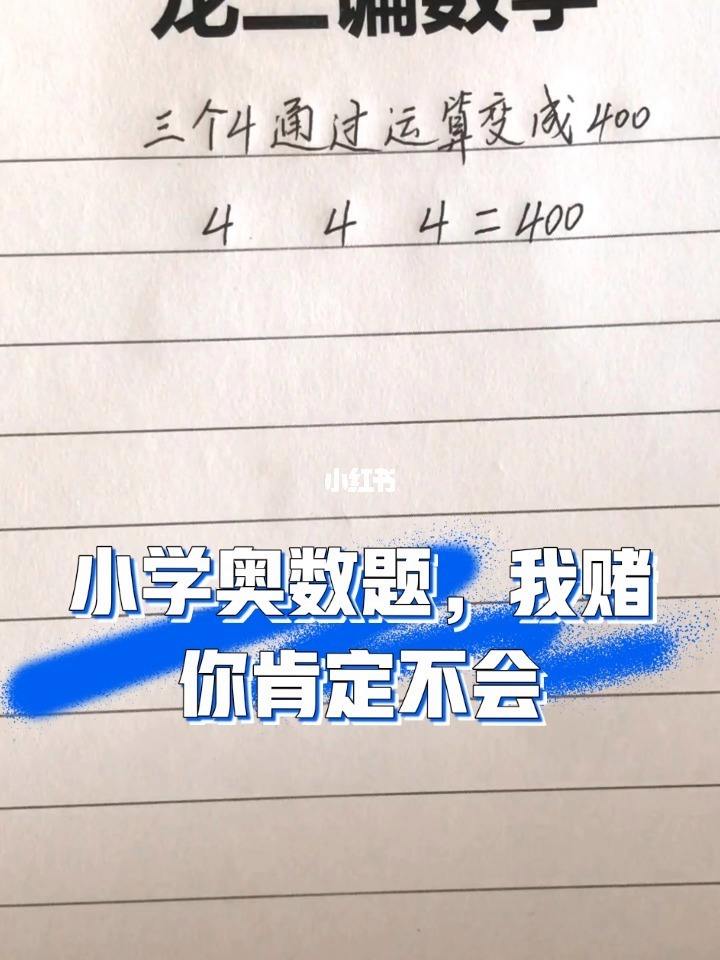 三个4通过运算变成400
4 4 4=400
小红书
小学奥数题，我赌
你肯定不会